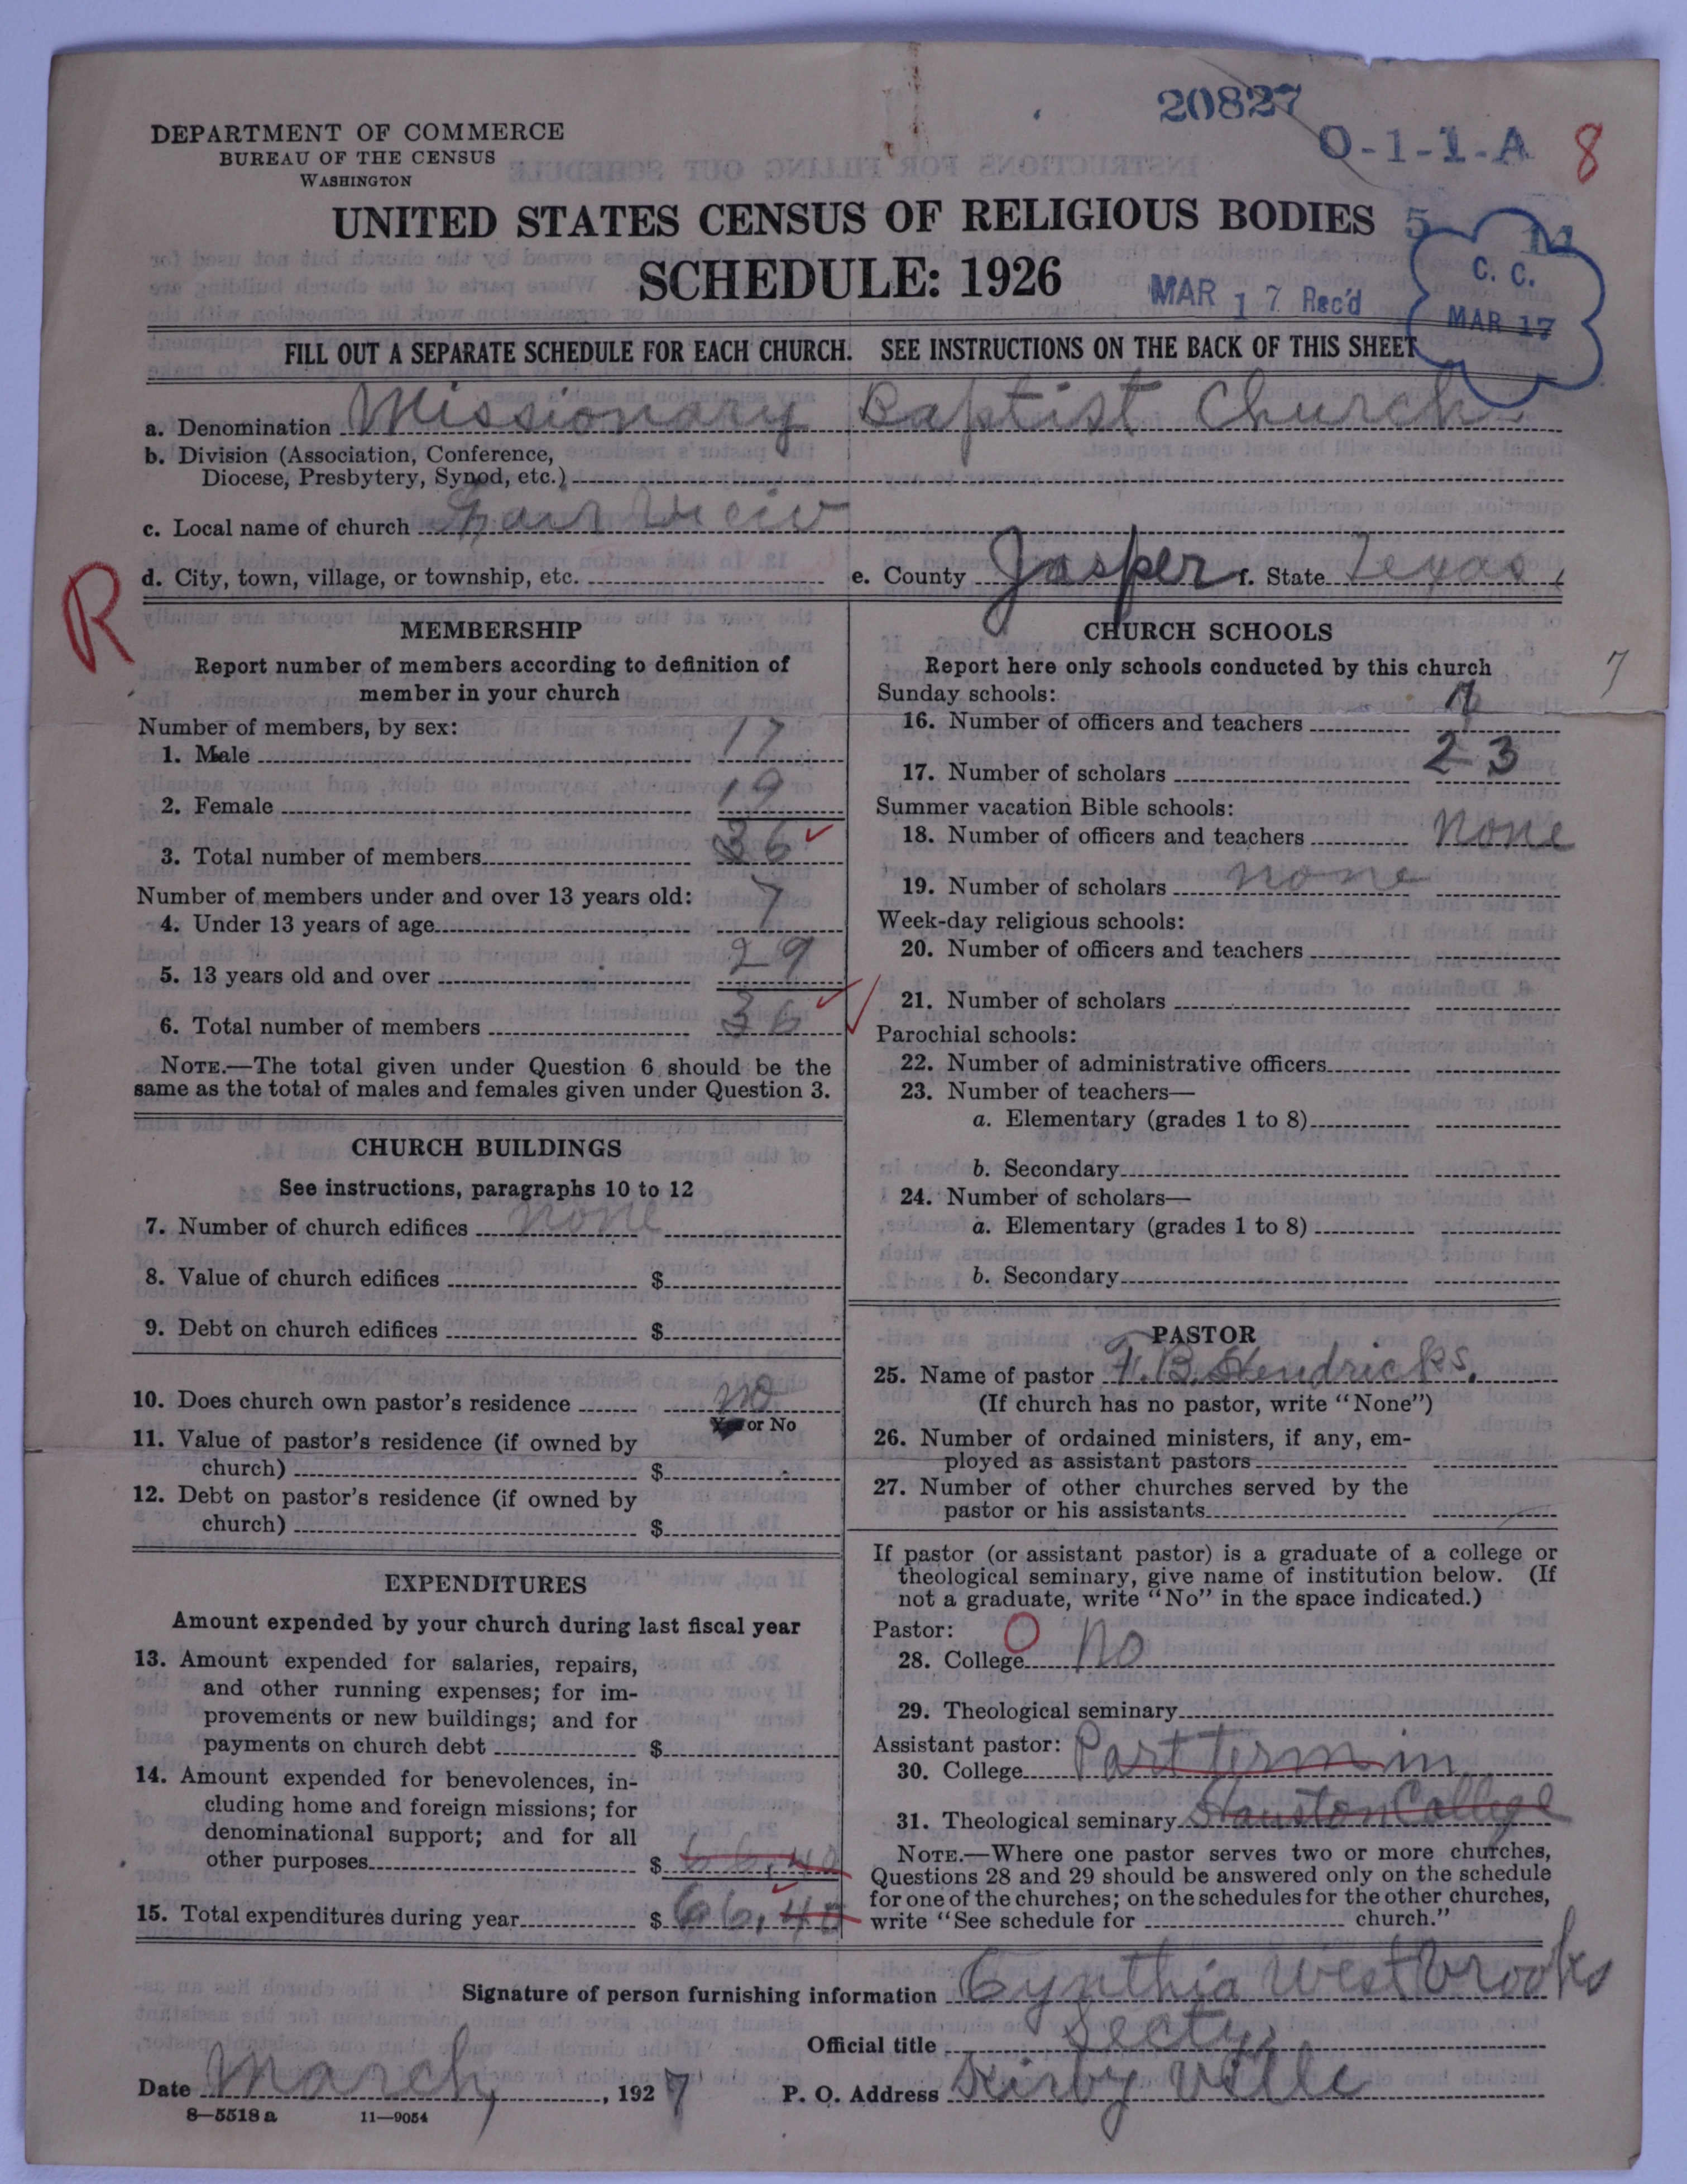 20827
O-1-1-A 8
DEPARTMENT OF COMMERCE
BUREAU OF THE CENSUS
WASHINGTON
UNITED STATES CENSUS OF RELIGIOUS BODIES
SCHEDULE: 1926
5 11
MAR 17 Rec'd
C. C.
MAR 17
FILL OUT A SEPARATE SCHEDULE FOR EACH CHURCH. SEE INSTRUCTIONS ON THE BACK OF THIS SHEET
a. Denomination Missionary Baptist Church
b. Division (Association, Conference,
Diocese, Presbytery, Synod, etc.)
c. Local name of church Fair View
R
d. City, town, village, or township, etc. e. County Jasper f. State Texas
MEMBERSHIP
Report number of members according to definition of
member in your church
Number of members, by sex:
1. Male 17
2. Female 19
3. Total number of members 36
Number of members under and over 13 years old:
4. Under 13 years of age 7
5. 13 years old and over 29
6. Total number of members 36
NOTE.—The total given under Question 6 should be the
same as the total of males and females given under Question 3.
CHURCH BUILDINGS
See instructions, paragraphs 10 to 12
7. Number of church edifices none
8. Value of church edifices $
9. Debt on church edifices $
10. Does church own pastor's residence no
Yes or No
11. Value of pastor's residence (if owned by
church) $
12. Debt on pastor's residence (if owned by
church) $
EXPENDITURES
Amount expended by your church during last fiscal year
13. Amount expended for salaries, repairs,
and other running expenses; for im-
provements or new buildings; and for
payments on church debt $
14. Amount expended for benevolences, in-
cluding home and foreign missions; for
denominational support; and for all
other purposes $ 66.40
15. Total expenditures during year $ 66.40
CHURCH SCHOOLS
Report here only schools conducted by this church
7
Sunday schools:
16. Number of officers and teachers
17. Number of scholars 23
Summer vacation Bible schools:
18. Number of officers and teachers none
19. Number of scholars none
Week-day religious schools:
20. Number of officers and teachers
21. Number of scholars
Parochial schools:
22. Number of administrative officers
23. Number of teachers—
a. Elementary (grades 1 to 8)
b. Secondary
24. Number of scholars—
a. Elementary (grades 1 to 8)
b. Secondary
PASTOR
25. Name of pastor F. B. Hendricks.
(If church has no pastor, write "None")
26. Number of ordained ministers, if any, em-
ployed as assistant pastors
27. Number of other churches served by the
pastor or his assistants
If pastor (or assistant pastor) is a graduate of a college or
theological seminary, give name of institution below. (If
not a graduate, write "No" in the space indicated.)
Pastor: O
28. College No
29. Theological seminary
Assistant pastor:
30. College Part term in
31. Theological seminary Houston College
NOTE.—Where one pastor serves two or more churches,
Questions 28 and 29 should be answered only on the schedule
for one of the churches; on the schedules for the other churches,
write "See schedule for church."
Signature of person furnishing information Cynthia Westbrooks
Official title Secty.
Date March, 1927 P. O. Address Kirbyville
8—5518 a 11—9054